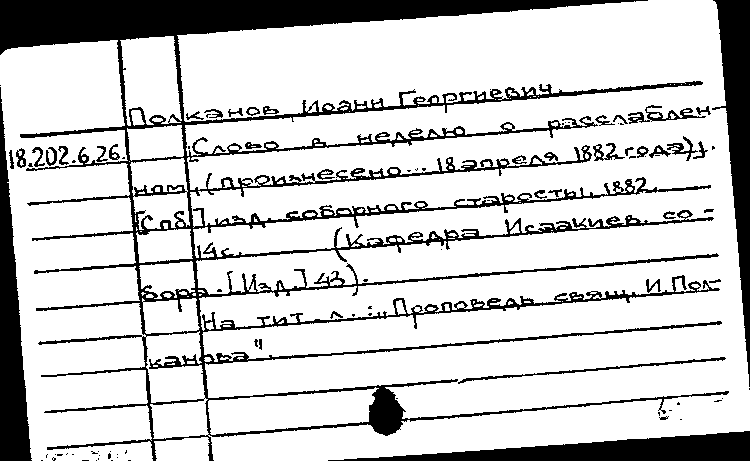 Полканов, Иоанн Георгиевич.
18.202.6.26. Слово в неделю о расслаблен-
ном, (произнесено... 18 апреля 1882 года).
[Спб.], изд. соборного старосты, 1882.
14 с. (Кафедра Исаакиев. со-
бора. [Изд.] 43).
На тит. л.: „Проповедь свящ. И. Пол-
канова".